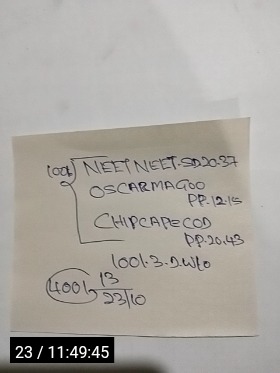 1001 NEET NEET.SD20.37
OSCARMAGOO
PP.12.15
CHIPCAPECOD
PP.20.43
1001.3.D.W/o
4001 13
23/10
23 / 11:49:45